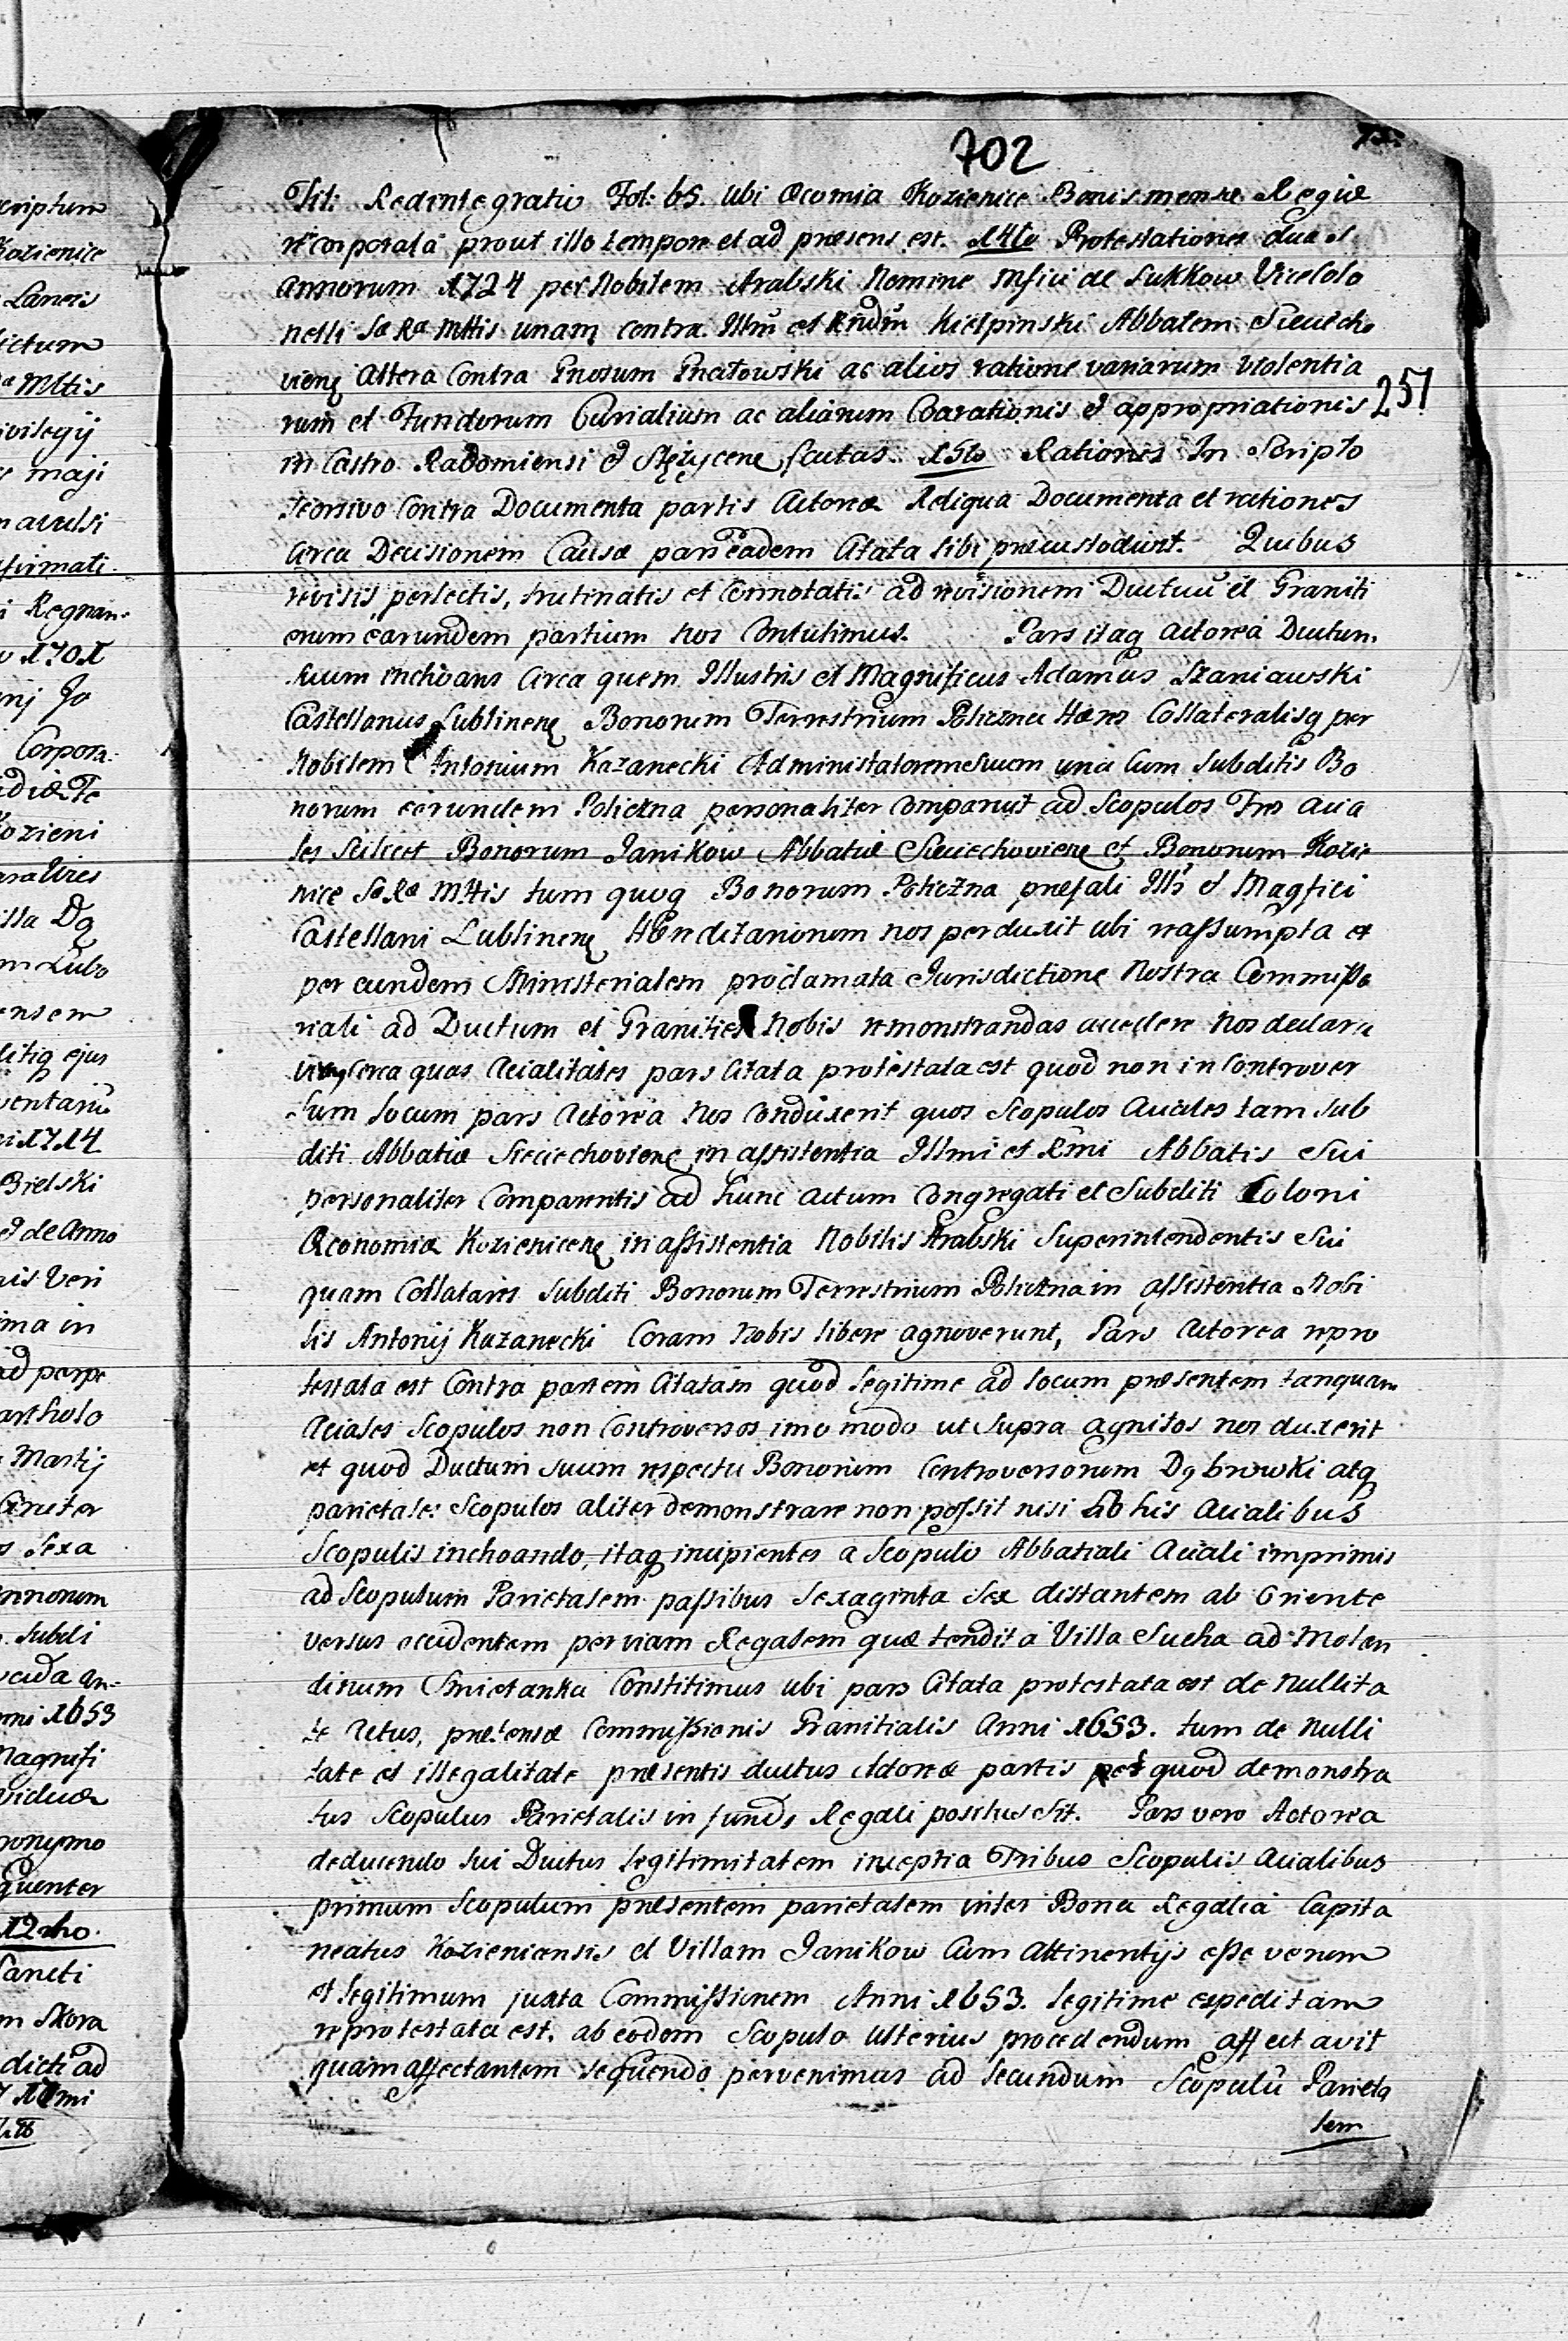 702
Tit: Redintegratio Fol: 65. ubi Œcomia Kozienice Bonis mensæ Regiæ
reCorporata prout illo tempore et ad præsens est. 14to Protestationes duas
Annorum 1724 per Nobilem Arabski Nomine Mfici de Sukkow ViceColo
nelli Sæ Ræ Mttis unam contra Illrm et Rndm Kiełpinski Abbatem Sieciecho
vienẹ Altera Contra Gnosum Gnatowski ac alios ratione variarum violentia
rum et Fundorum Curialium ac aliarum Coarationis et appropriationis
251
in Castro Radomiensi et Stężycenẹ factas. 15to Rationes In Scripto
seorsivo Contra Documenta partis Actoreæ Reliqua Documenta et rationes
circa Decisionem Causæ pars eadem Citata sibi præcustodivit. Quibus
revisis perlectis, trutinatis et Connotatis ad revisionem Ductuũ et Graniti
erum earundem partium nos Contulimus. Pars itaq Actorea Ductum
suum inchoans Circa quem Illustris et Magnificus Adamus Szaniawski
Castellanus Lublinenẹ Bonorum Terrestrium Policzna Hæres Collateralisq per
Nobilem Antonium Kazanecki Administratoremsuum una Cum Subditis Bo
norum eorundem Policzna personaliter Comparuit ad Scopulos Tres Acia
les Scilicet Bonorum Janikow Abbatiæ Sieciechovienẹ et Bonorum Kozie
nice Sæ Ræ Mttis tum quoq Bonorum Policzna præfati Illrs et Magfici
Castellani Lublinenẹ Hæreditariorum nos perduxit ubi reassumpta et
per eundem Ministerialem proclamata Jurisdictione Nostra Commisso
riali ad Ductum et Granities Nobis remonstrandas accedere Nos declara
Circa quas Acialitates pars Citata protestata est quod non in Controver
sum Locum pars Actorea Nos Conduxerit quos Scopulos Aciales tam Sub
diti Abbatiæ Sieciechovienẹ in assistentia Illmi et Rmi Abbatis Sui
personaliter Comparentis ad hunc actum Congregati et Subditi Coloni
Œconomiæ Kozienicenẹ in assistentia Nobilis Arabski Superintendentis Sui
quam Subditi Bonorum Terrestrium Policzna in assistentia Nobi
lis Antonij Kazanecki Coram Nobis libere agnoverunt, Pars Actorea repro
testata est Contra partem Citatam quod legitime ad locum præsentem tanquam
Aciales Scopulos non Controversos imo modo ut Supra agnitos nos duxerit
et quod Ductum suum respectu Bonorum Controversorum Dąbrowki atq
parietales Scopulos aliter demonstrare non possit nisi ab his Acialibus
Scopulis inchoando, itaq incipientes a Scopulo Abbatiali Aciali imprimis
ad Scopulum Parietalem passibus Sexaginta Sex distantem ab Oriente
versus occidentem per viam Regalem quæ tendit a Villa Sucha ad Molen
dinum Smietanka Constitimus ubi pars Citata protestata est de Nullita
te Actus, prætensæ Commissionis Granitialis Anni 1653. tum de Nulli
tate et illegalitate præsentis ductus Actoreæ partis quod demonstra
tus Scopulus Parietalis in fundo Regali positus sit. Pars vero Actorea
deducendo sui Ductus legitimitatem incepti a Tribus Scopulis Acialibus
primum Scopulum præsentem parietalem inter Bona Regalia Capita
neatus Kozieniensis et Villam Janikow Cum Attinentijs esse verum
et legitimum juxta Commissionem Anni 1653. legitime expeditam
reprotestata est, ab eodem Scopulo ulterius procedendum affectavit
quam affectantem sequendo pervenimus ad Secundum Scopulũ Parieta
lem